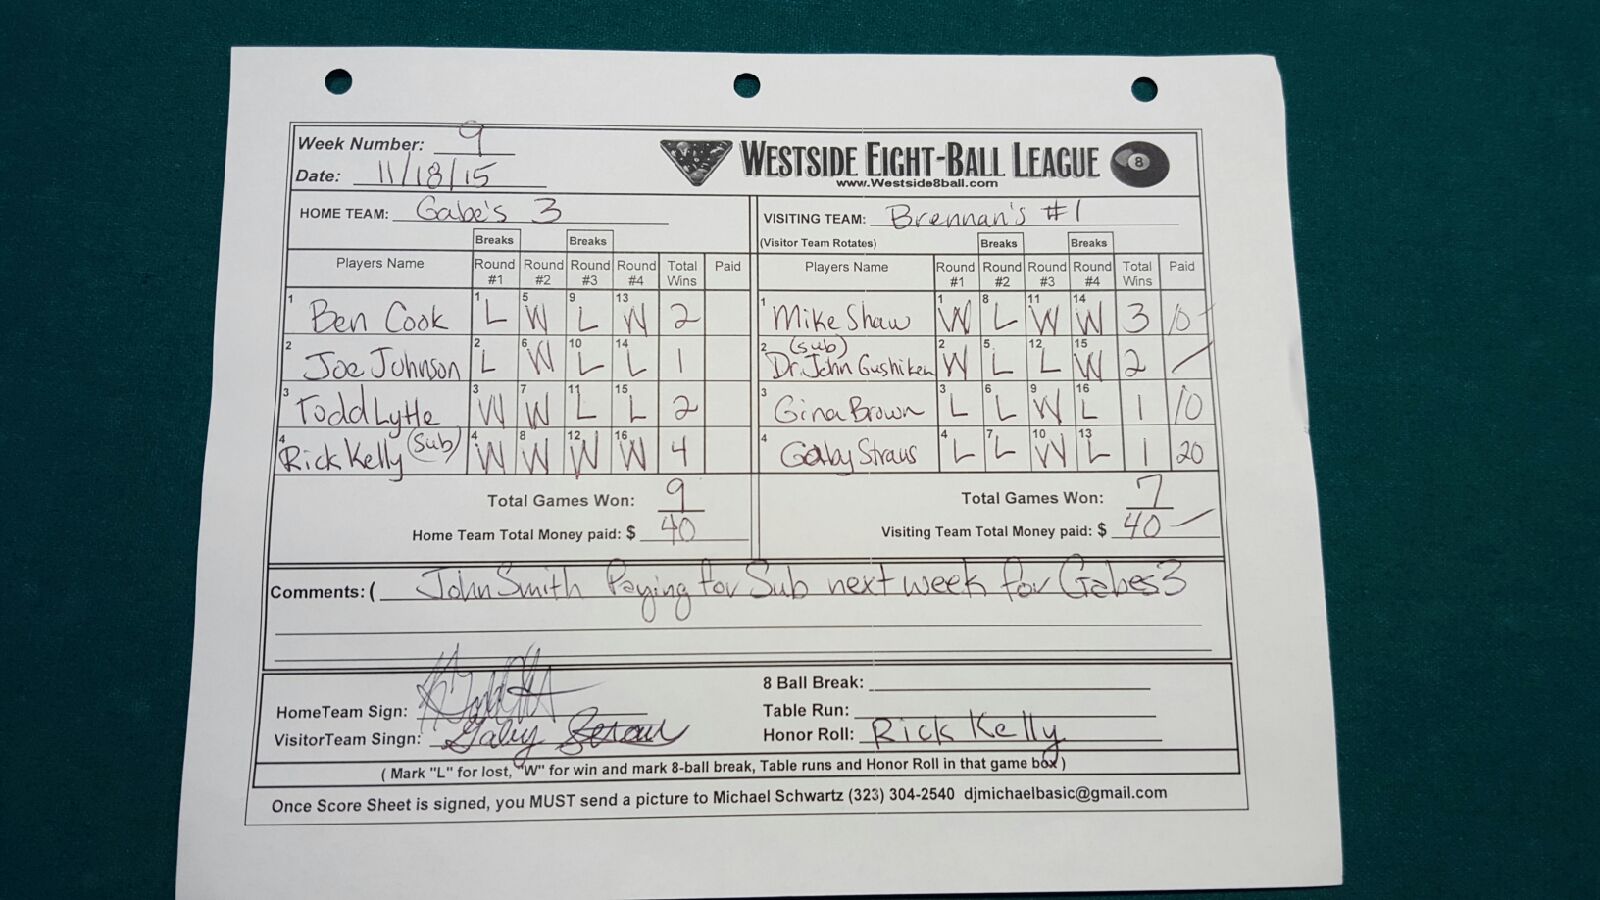 Week Number: 9
Date: 11/18/15
WESTSIDE EIGHT-BALL LEAGUE
www.Westside8ball.com
8
HOME TEAM: Gabe's 3
VISITING TEAM: Brennan's #1
(Visitor Team Rotates)
Breaks Breaks Breaks Breaks
Players Name Round #1 Round #2 Round #3 Round #4 Total Wins Paid Players Name Round #1 Round #2 Round #3 Round #4 Total Wins Paid
1 Ben Cook 1 L 5 W 9 L 13 W 2 1 Mike Shaw 1 W 8 L 11 W 14 W 3 10
2 Joe Johnson 2 L 6 W 10 L 14 L 1 2 (sub) Dr. John Gushiken 2 W 5 L 12 L 15 W 2 —
3 Todd Lytle 3 W 7 W 11 L 15 L 2 3 Gina Brown 3 L 6 L 9 W 16 L 1 10
4 Rick Kelly (Sub) 4 W 8 W 12 W 16 W 4 4 Gaby Straus 4 L 7 L 10 W 13 L 1 20
Total Games Won: 9 Total Games Won: 7
Home Team Total Money paid: $ 40 Visiting Team Total Money paid: $ 40 —
Comments: ( John Smith Paying for Sub next week for Gabes 3
8 Ball Break:
HomeTeam Sign: Table Run:
VisitorTeam Singn: Gaby Straus Honor Roll: Rick Kelly
( Mark "L" for lost, "W" for win and mark 8-ball break, Table runs and Honor Roll in that game box )
Once Score Sheet is signed, you MUST send a picture to Michael Schwartz (323) 304-2540 djmichaelbasic@gmail.com